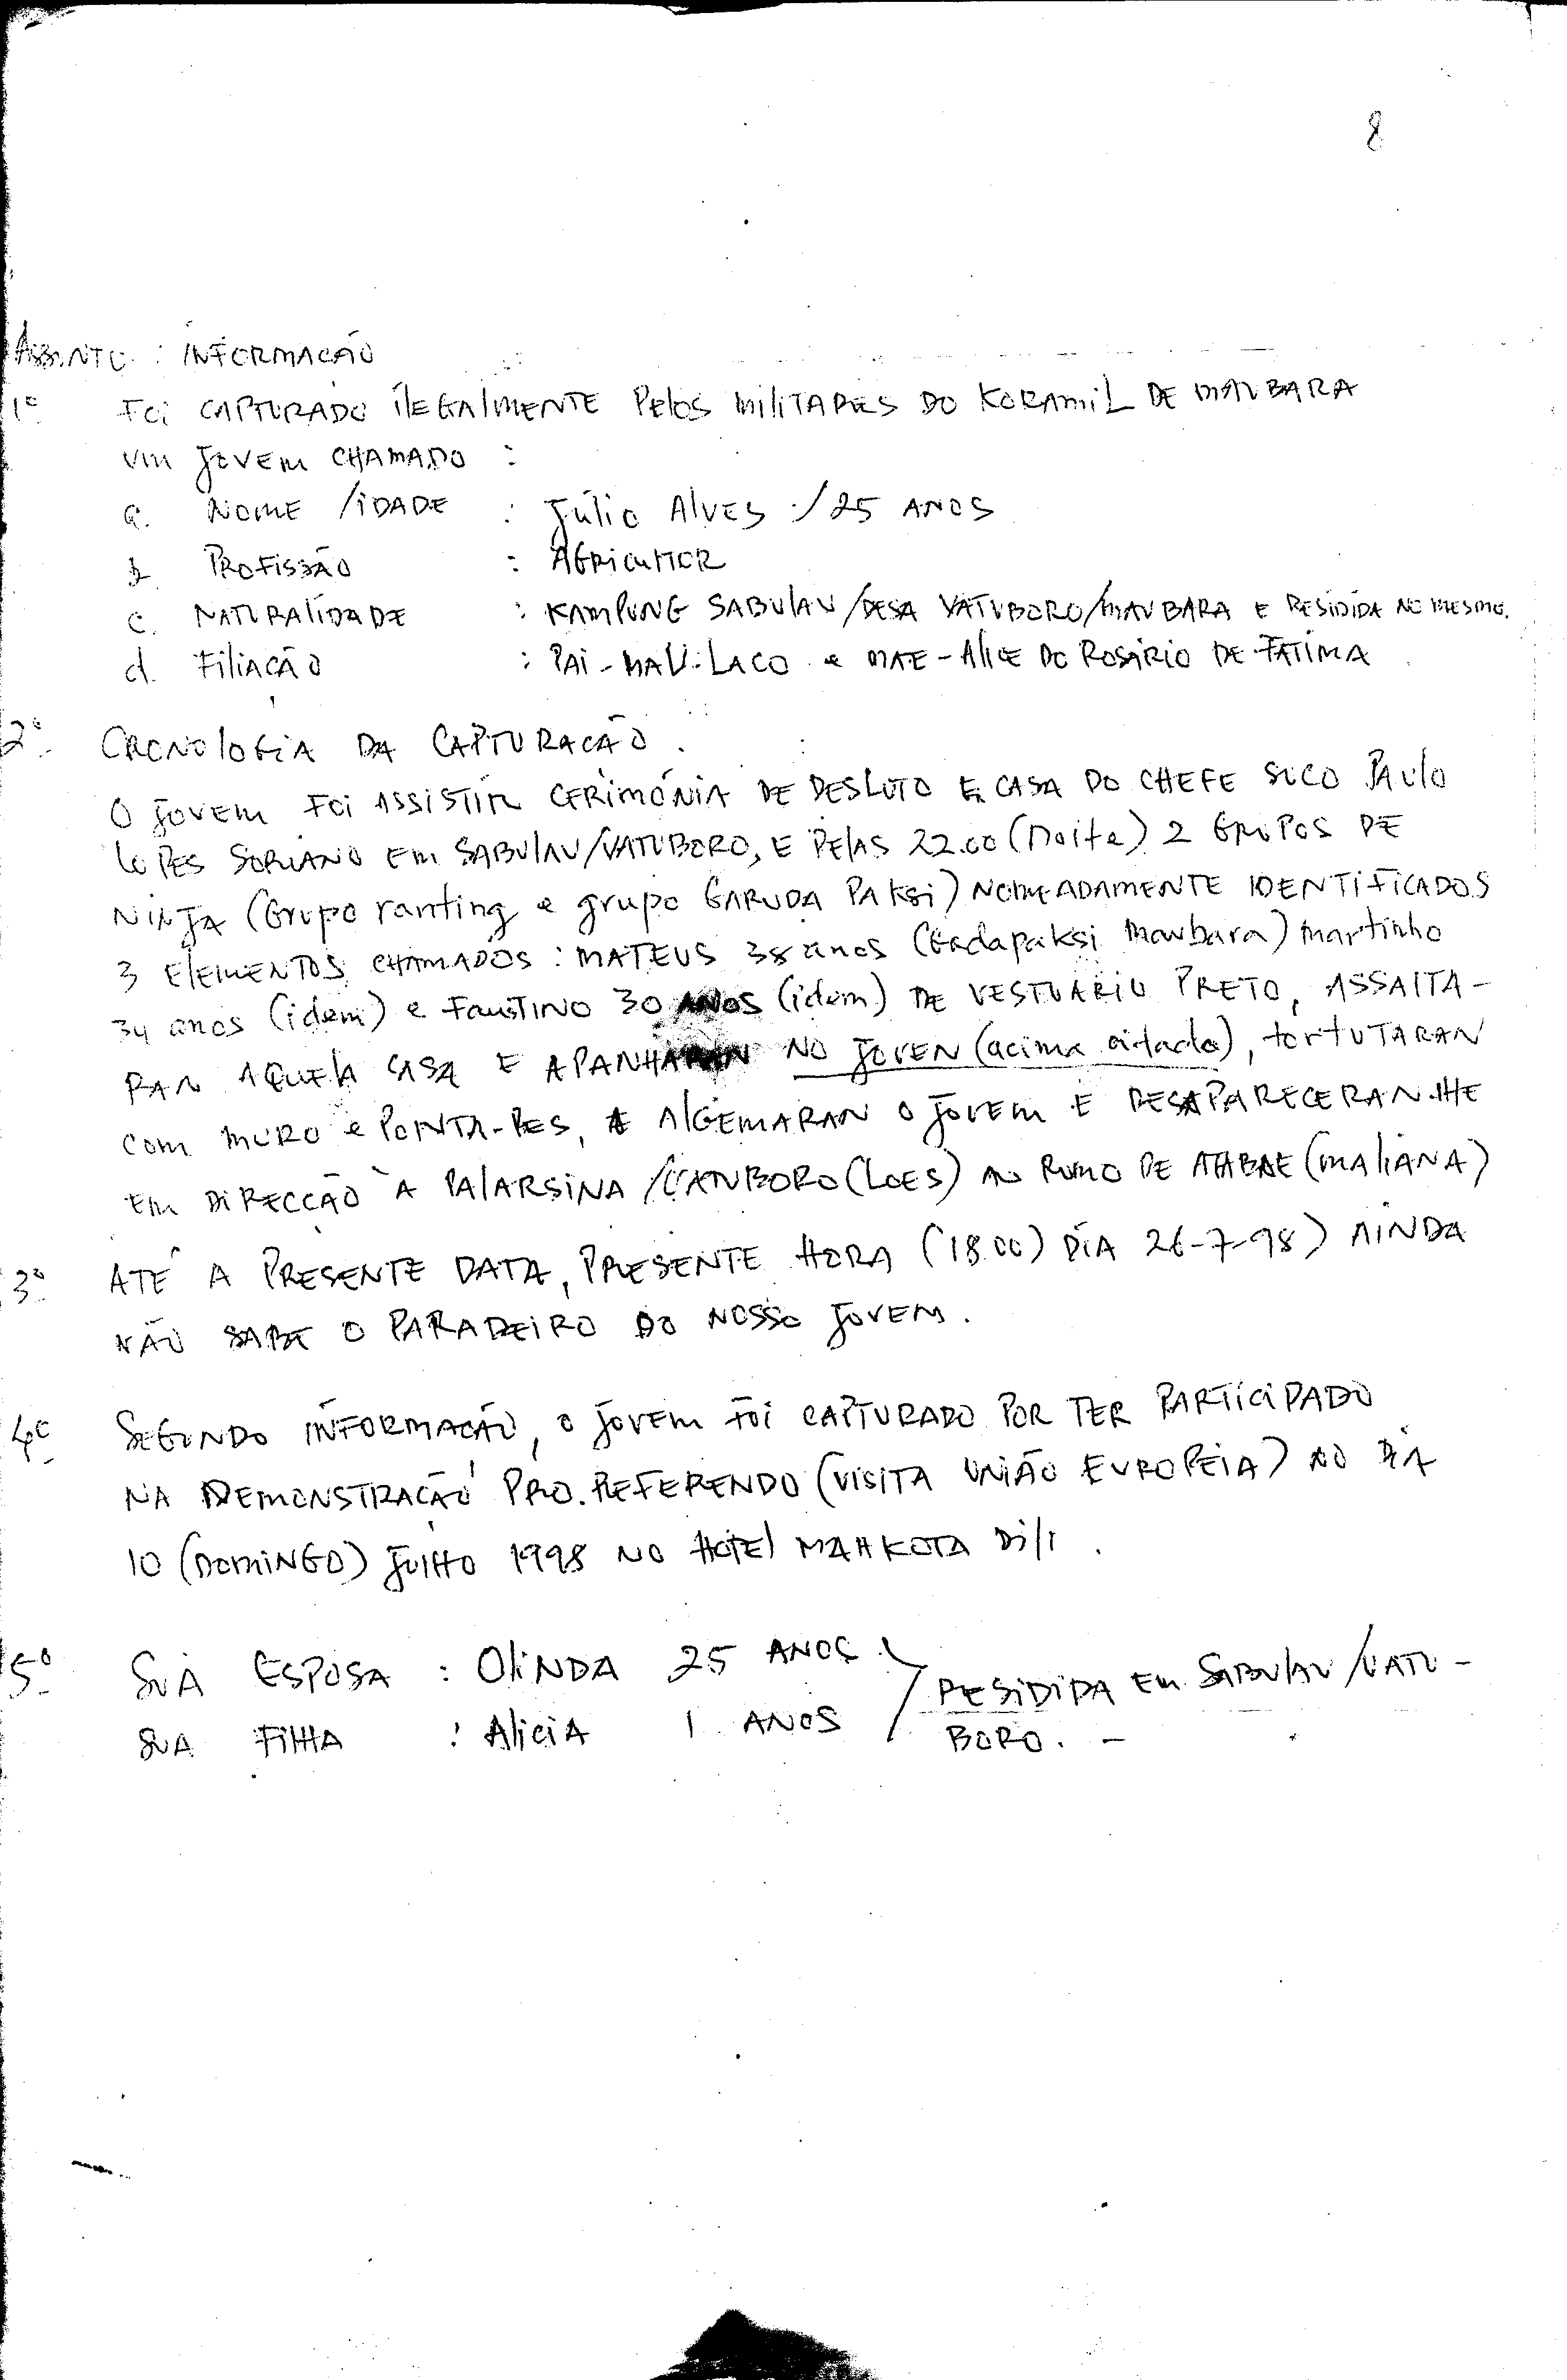 8
ASSUNTO : INFORMAÇÃO
1º FOI CAPTURADO ILEGALMENTE PELOS MILITARES DO KORAMIL DE MAUBARA
UM JOVEM CHAMADO :
a. NOME /IDADE : Júlio Alves ./25 ANOS
b PROFISSÃO : AGRICULTOR
c. NATURALIDADE : KAMPUNG SABULAU/DESA VATUBORO/MAUBARA E RESIDIDA NO MESMO.
d. FILIAÇÃO : PAI - MAU-LACO e MAE - ALICE DO ROSÁRIO DE FATIMA
2º CRONOLOGIA DA CAPTURAÇÃO.
O JOVEM FOI ASSISTIR CERIMÓNIA DE DESLUTO EM CASA DO CHEFE SUCO PAULO
LOPES SORIANO EM SABULAU/VATUBORO, E PELAS 22.00 (Noite) 2 GRUPOS DE
NINJA (Grupo ranting e grupo GARUDA PAKSI) NOMEADAMENTE IDENTIFICADOS
3 ELEMENTOS CHAMADOS : MATEUS 38 anos (Gadapaksi Maubara) Martinho
34 anos (idem) e FAUSTINO 30 ANOS (idem) DE VESTUÁRIO PRETO, ASSALTA-
RAN AQUELA CASA E APANHARAN NO JOVEN (acima citado), TORTUTARAN
COM MURO e PONTA-PES, E ALGEMARAN O JOVEM E DESAPARECERAN-LHE
EM DIRECÇÃO À PALARSINA /VATUBORO (LOES) AO RUMO DE ATABAE (MALIANA)
3º ATÉ A PRESENTE DATA, PRESENTE HORA (18.00) DIA 26-7-98) AINDA
NÃO SABE O PARADEIRO DO NOSSO JOVEM.
4º SEGUNDO INFORMAÇÃO, O JOVEM FOI CAPTURADO POR TER PARTICIPADO
NA DEMONSTRAÇÃO PRO.REFERENDO (VISITA UNIÃO EUROPEIA) NO DIA
10 (DOMINGO) JULHO 1998 NO HOTEL MAHKOTA DILI.
5º SUA ESPOSA : OLINDA 25 ANOS. } RESIDIDA EM SABULAU /VATU-
SUA FILHA : ALICIA 1 ANOS BORO. -